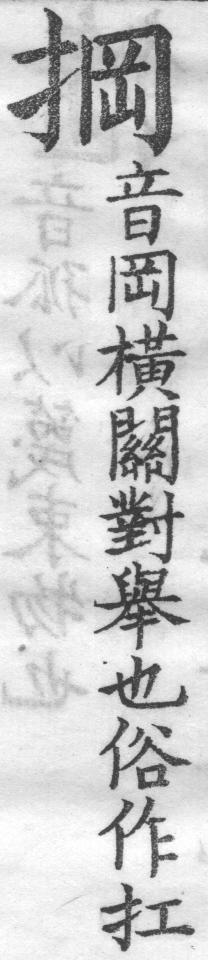 掆音岡橫關對舉也俗作扛